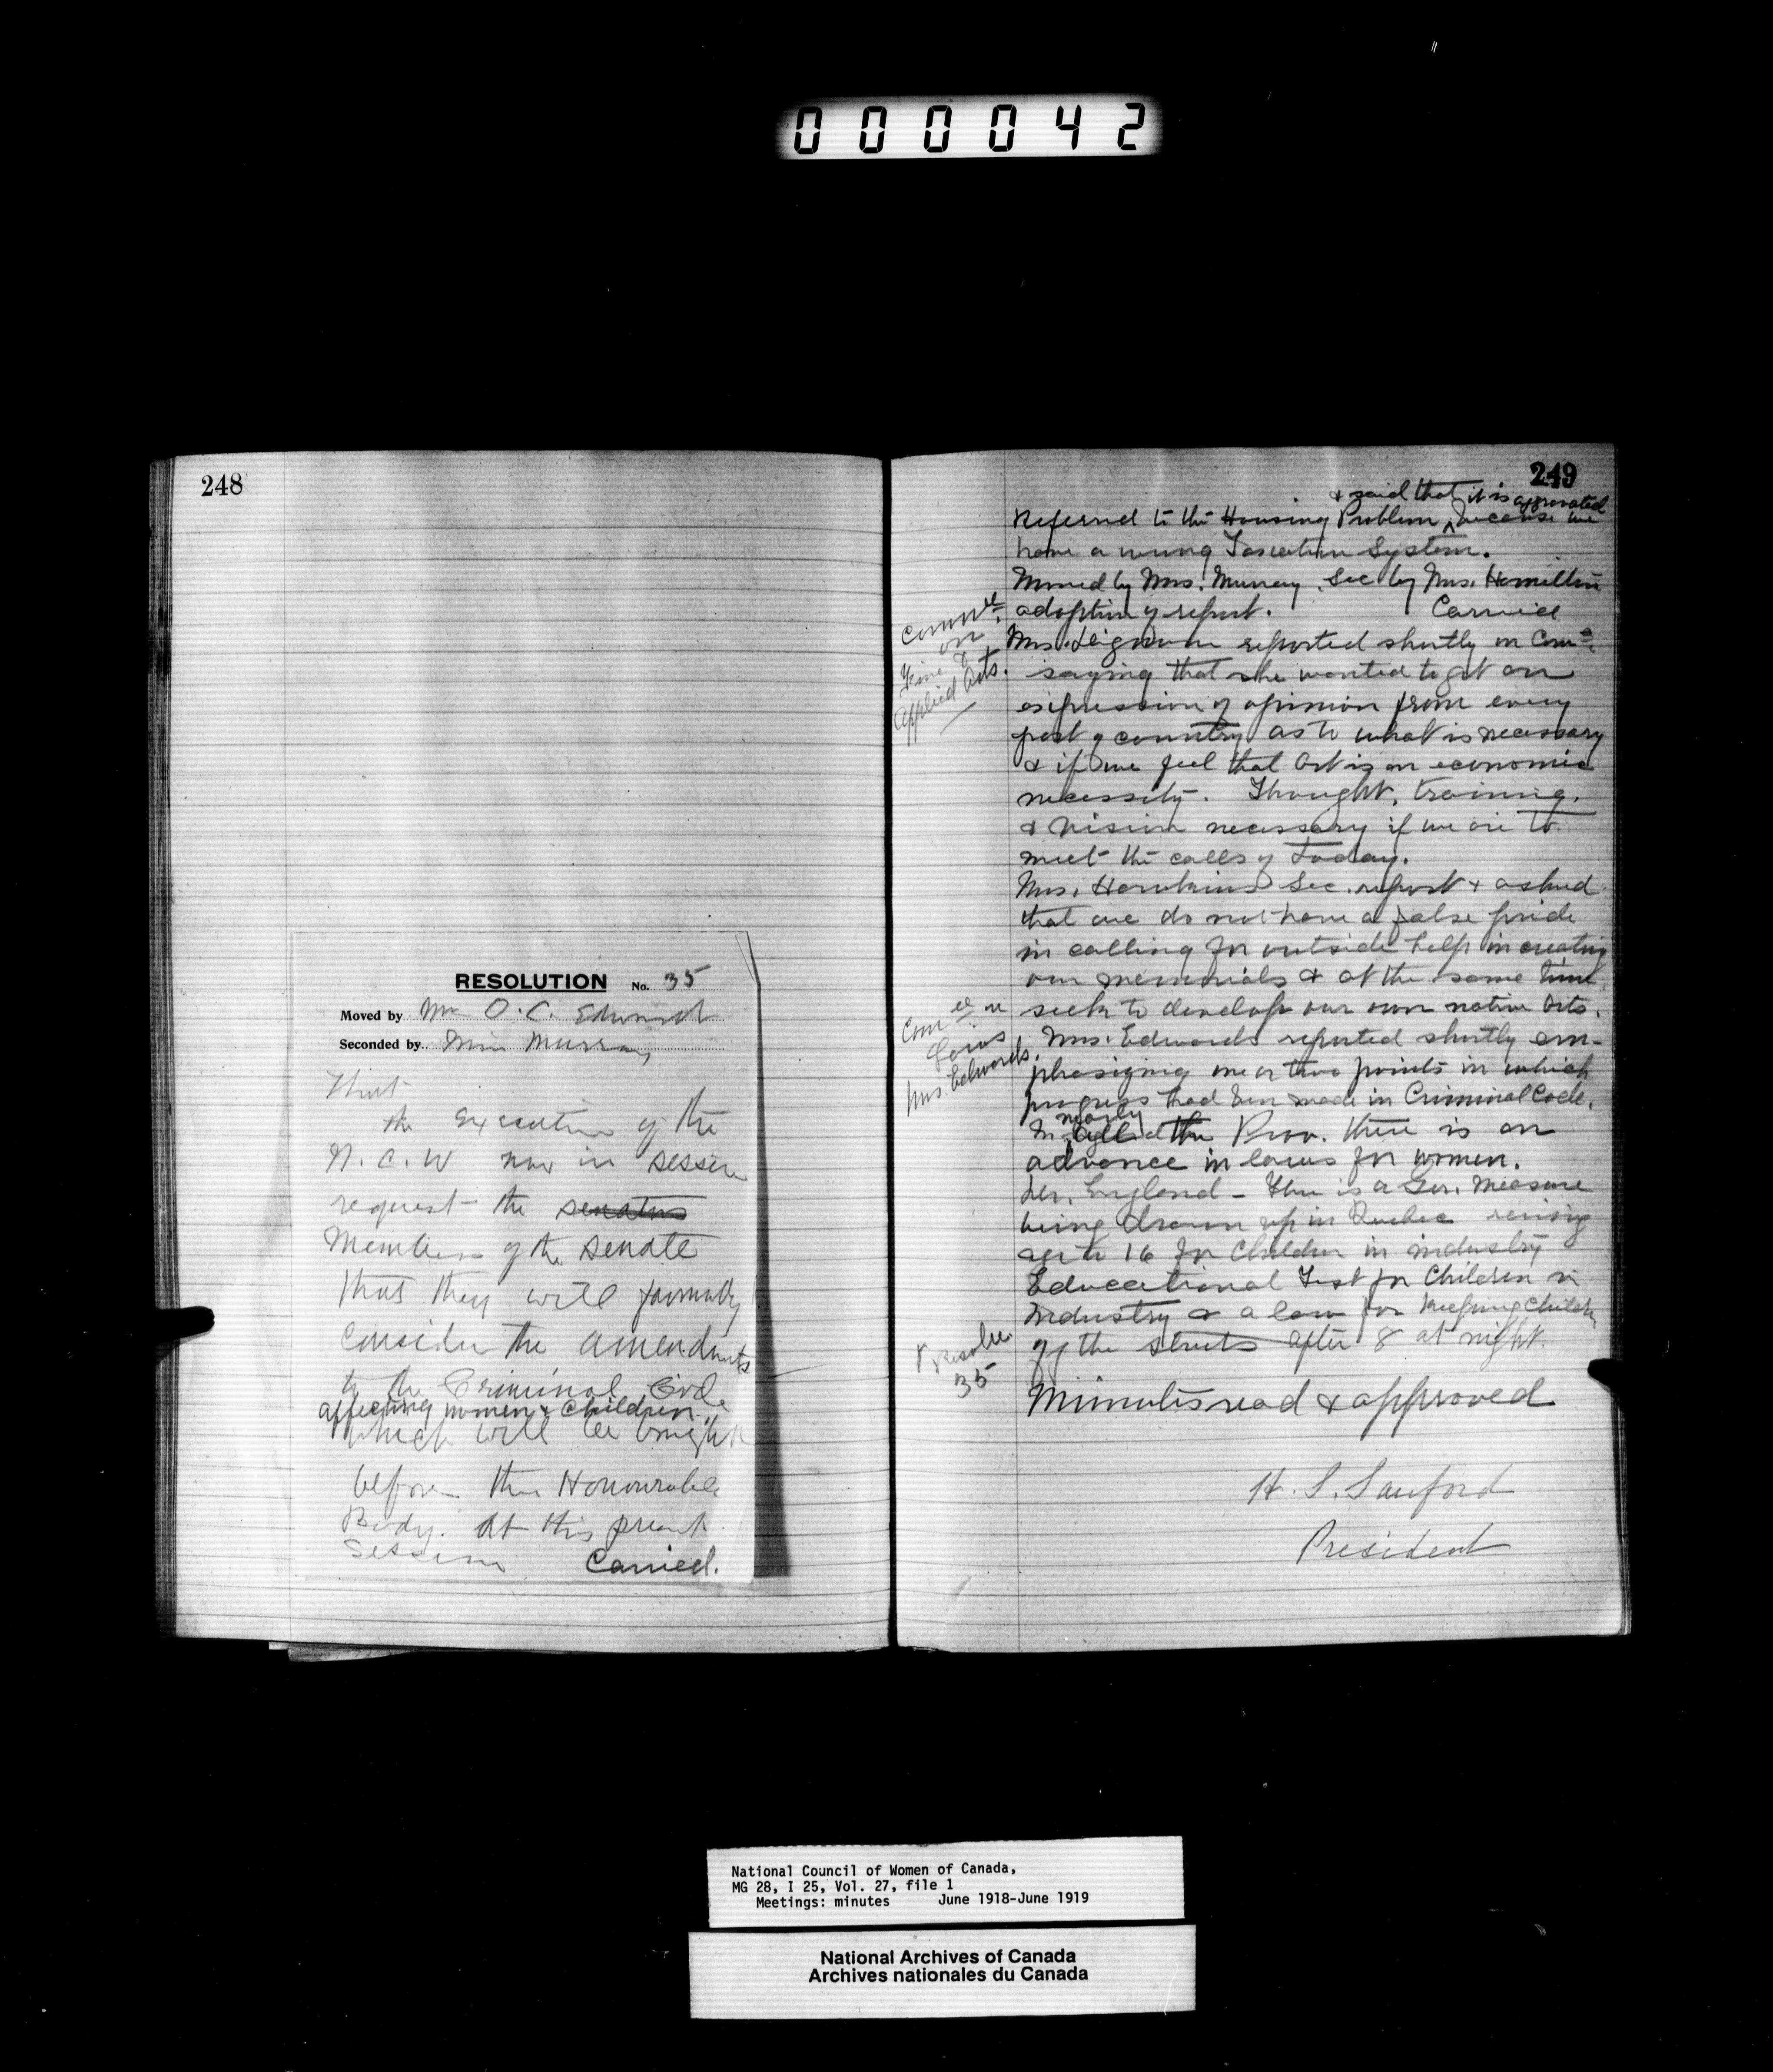 000042
248
RESOLUTION No. 35
Moved by Mrs O. C. Edwards
Seconded by Miss Murray
That
the executive of the
N. C. W now in session
request the senators
Members of the Senate
that they will favourably
consider the amendments
to the Criminal Code
affecting women & children
which will be brought
before this Honourable
Body. At this present
session Carried.
249
& said that it is aggravated
Referred to the Housing Problem, because we
have a wrong Taxation System.
Moved by Mrs. Murray. Sec by Mrs. Hamilton
adoption of report. Carried
Commee
on
Fine &
Applied Arts.
Mrs. reported shortly on Come.
saying that she wanted to get an
expression of opinion from every
part of country as to what is necessary
& if we feel that Art is an economic
necessity. Thought, training,
& vision necessary if we are to
meet the calls of today.
Mrs. Hawkins Sec. report & asked
that we do not have a false pride
in calling for outside help in creating
our memorials & at the same time
seek to develop our own native Arts.
Comee on
Laws
Mrs. Edwards.
Mrs. Edwards reported shortly em-
phasizing one or two points in which
progress had been made in Criminal Code.
nearly
In all the Prov. there is an
advance in laws for women.
England - There is a Gov. Measure
being drawn up in Quebec raising
age to 16 for Children in industry
Educational Test for Children in
Industry & a law for keeping Children
off the streets after 8 at night.
Resolu
35
Minutes read & approved
H. S. Sanford
President
National Council of Women of Canada,
MG 28, I 25, Vol. 27, file 1
Meetings: minutes June 1918-June 1919
National Archives of Canada
Archives nationales du Canada